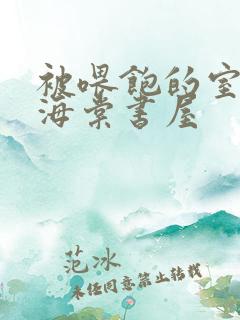 被喂饱的室
海棠书屋
范冰
未经同意禁止转载